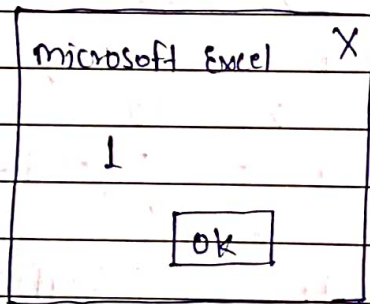 Microsoft Excel X
1
OK